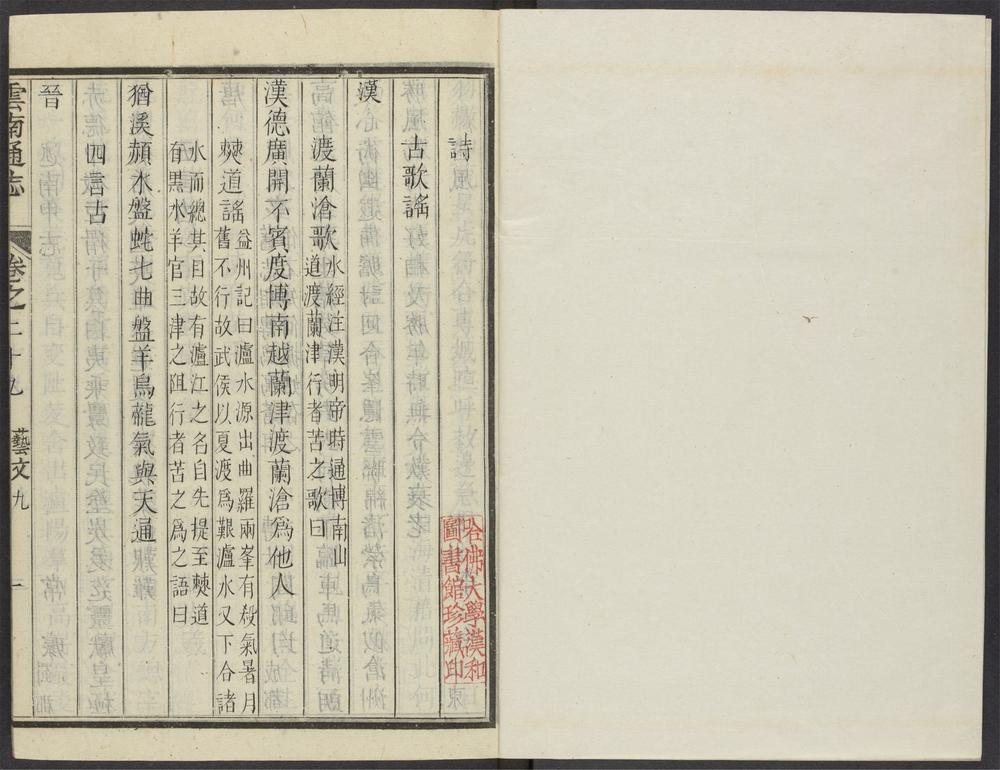 詩
古歌謠
漢
渡蘭滄歌水經注漢明帝時通博南山
道渡蘭津行者苦之歌曰
漢德廣開不賓度博南越蘭津渡蘭滄爲他人
僰道謠益州記曰瀘水源出曲羅兩峯有殺氣暑月
舊不行故武侯以夏渡爲艱瀘水又下合諸
水而總其目故有瀘江之名自先提至僰道
有黑水羊官三津之阻行者苦之爲之語曰
猶溪頳水盤虵七曲盤羊烏櫳氣與天通
四言古
晉
雲南通志
卷之二十九
藝文九
一
哈佛大學漢和
圖書館珍藏印